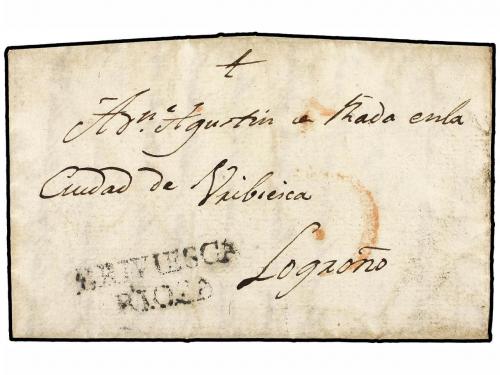 A Dn. Agustin e Rada en la
Ciudad de Vribiesca
Logroño
BRIVIESCA
RIOJA